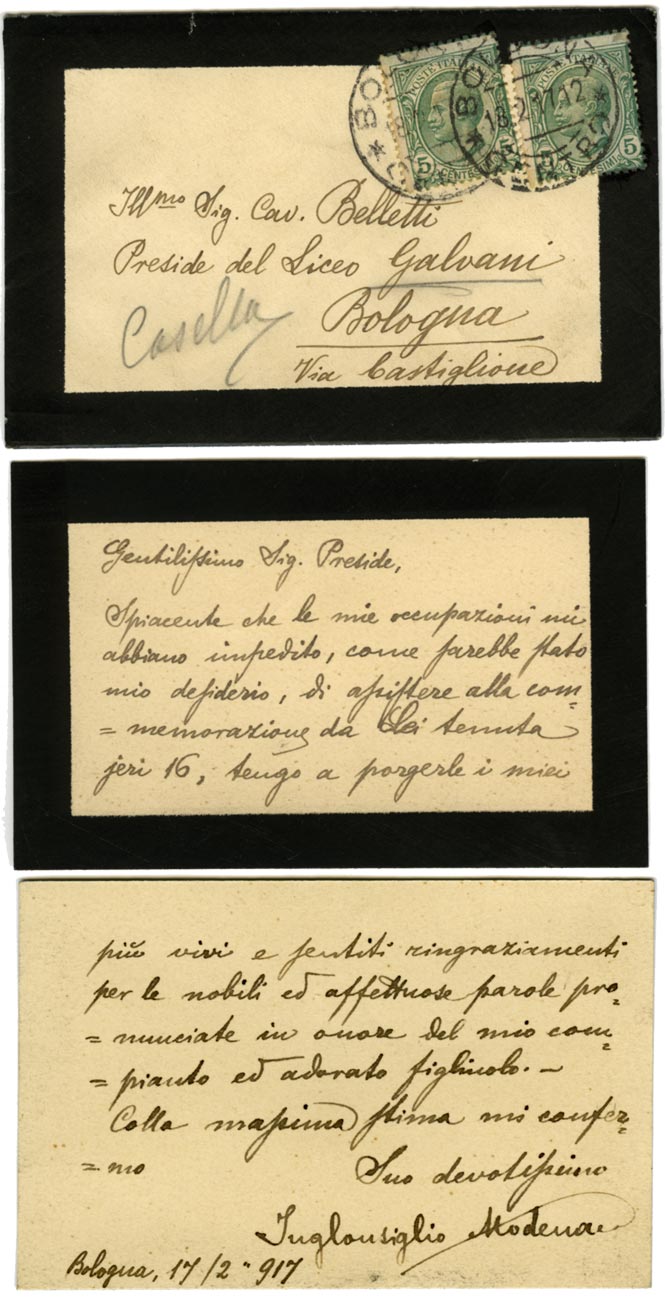 BOLOGNA
18.2.17.12
POSTE ITALIANE
5 CENTESIMI 5
Ill.mo Sig. Cav. Belletti
Preside del Liceo Galvani
Bologna
Via Castiglione
Casella
Gentilissimo Sig. Preside,
Spiacente che le mie occupazioni mi
abbiano impedito, come sarebbe stato
mio desiderio, di assistere alla com=
=memorazione da Lei tenuta
jeri 16, tengo a porgerle i miei
più vivi e sentiti ringraziamenti
per le nobili ed affettuose parole pro=
=nunciate in onore del mio com=
=pianto ed adorato figliuolo. –
Colla massima stima mi confer=
=mo Suo devotissimo
Modena
Bologna, 17/2" 917